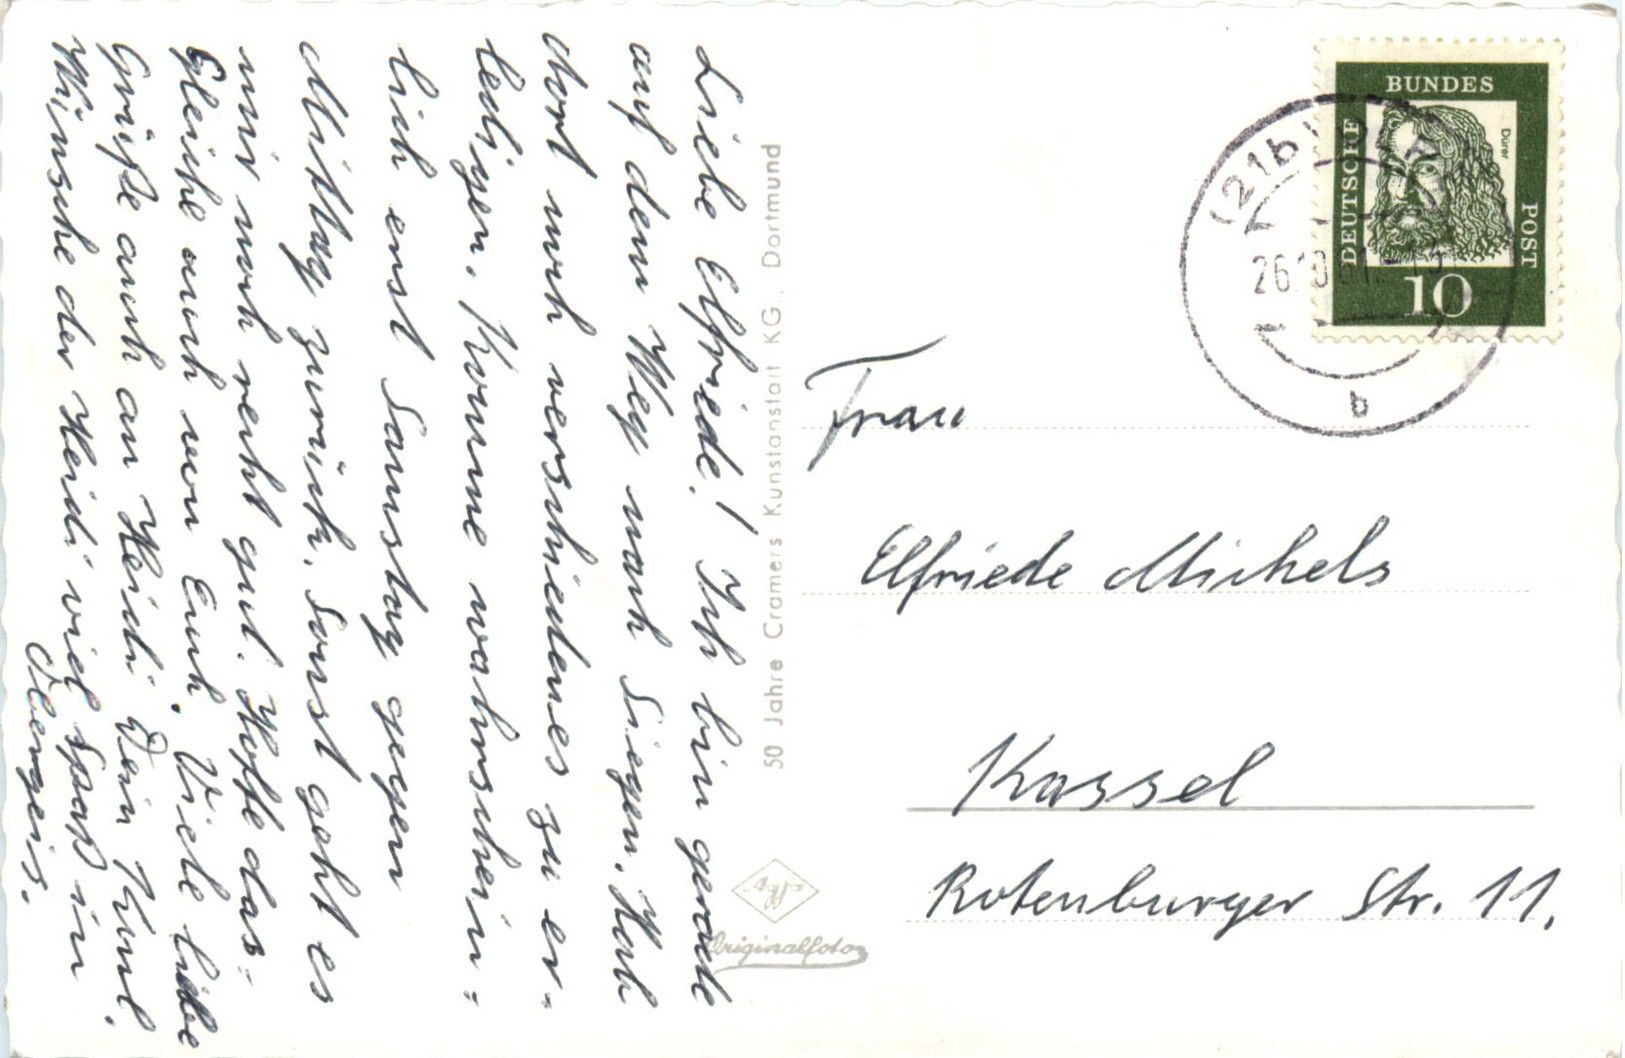 Liebe Elfriede! Ich bin gerade
auf dem Weg nach Siegen. Hab
dort noch verschiedenes zu er-
ledigen. Komme wahrschein-
lich erst Samstag gegen
Mittag zurück. Sonst geht es
mir noch recht gut. Hoffe das-
Gleiche auch von Euch. Viele liebe
Grüße auch an Heidi Dein Kurt.
Wünsche der Heidi viel Spaß in
50 Jahre Cramers Kunstanstalt KG., Dortmund
Agfa
Originalfoto
DEUTSCHE
BUNDES
POST
Dürer
10
(21b)
26.10.61
b
Frau
Elfriede Michels
Kassel
Rotenburger Str. 11.